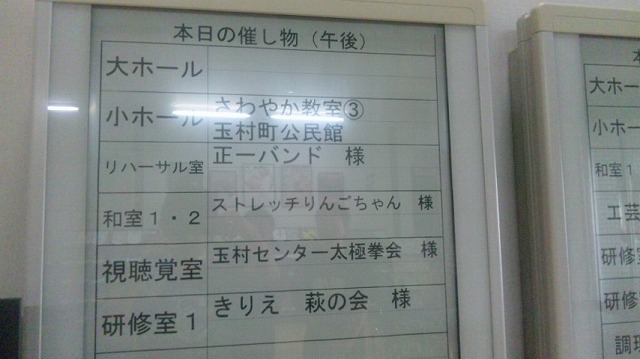 本日の催し物（午後）
大ホール
小ホール さわやか教室③
玉村町公民館
リハーサル室 正一バンド 様
和室１・２ ストレッチりんごちゃん 様
視聴覚室 玉村センター太極拳会 様
研修室１ きりえ 萩の会 様
大ホー
小ホー
和室１
工芸
研修
研修
調理